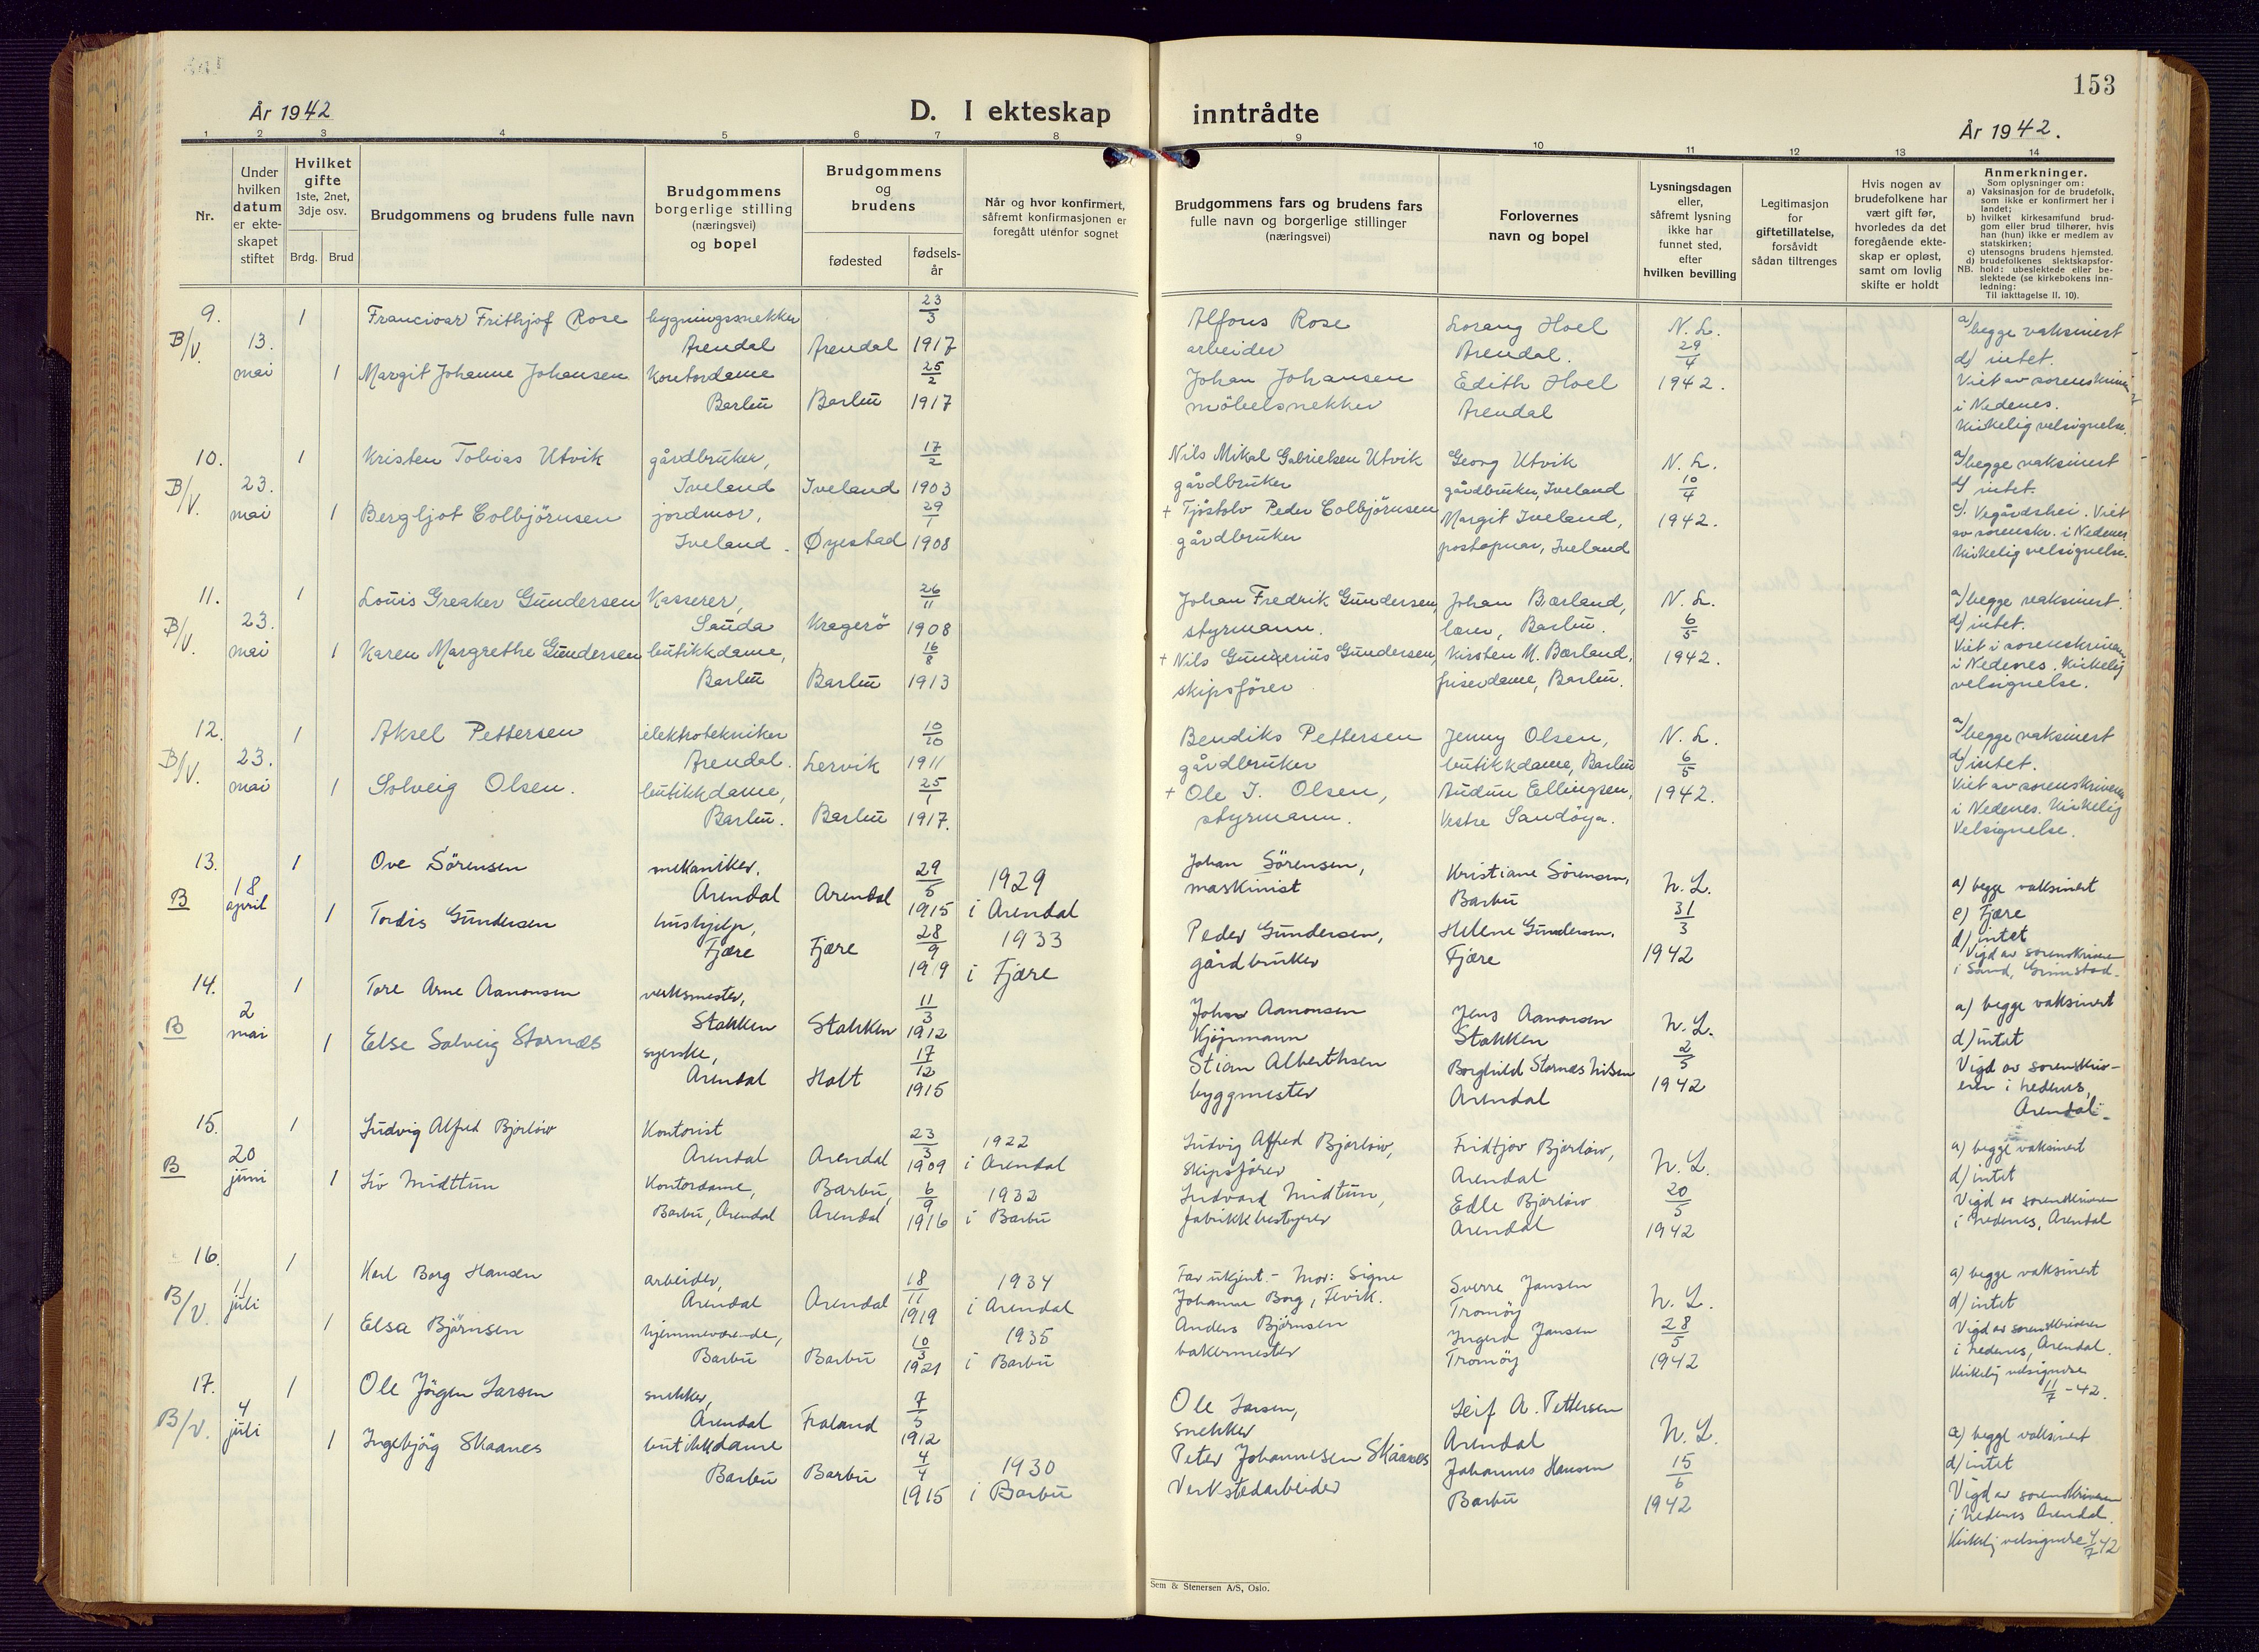 153
År 1942
D. I ekteskap inntrådte
År 1942.
1 2 3 4 5 6 7 8 9 10 11 12 13 14
Nr.
Under
hvilken
datum
er ekte-
skapet
stiftet
Hvilket
gifte
1ste, 2net,
3dje osv.
Brdg. Brud
Brudgommens og brudens fulle navn
Brudgommens
borgerlige stilling
(næringsvei)
og bopel
Brudgommens
og
brudens
fødested
fødsels-
år
Når og hvor konfirmert,
såfremt konfirmasjonen er
foregått utenfor sognet
Brudgommens fars og brudens fars
fulle navn og borgerlige stillinger
(næringsvei)
Forlovernes
navn og bopel
Lysningsdagen
eller,
såfremt lysning
ikke har
funnet sted,
efter
hvilken bevilling
Legitimasjon
for
giftetillatelse,
forsåvidt
sådan tiltrenges
Hvis nogen av
brudefolkene har
vært gift før,
hvorledes da det
foregående ekte-
skap er opløst,
samt om lovlig
skifte er holdt
Anmerkninger.
Som oplysninger om:
a) Vaksinasjon for de brudefolk,
som ikke er konfirmert her i
landet;
b) hvilket kirkesamfund brud-
gom eller brud tilhører, hvis
han (hun) ikke er medlem av
statskirken;
c) utensogns brudens hjemsted.
d) brudefolkenes slektskapsfor-
NB. hold: ubeslektede eller be-
slektede (se kirkebokens inn-
ledning:
Til iakttagelse II. 10).
9. B/V. 13. mai
1 Frithjof Rose
bygningssnekker
Arendal Arendal 23/3 1917
1 Margit Johanne Johansen
kontordame
Barbu Barbu 25/2 1917
Alfons Rose
arbeider
Johan Johansen
møbelsnekker
Lorang Hoel
Arendal.
Edith Hoel
Arendal
N. L.
29/4
1942.
a) begge vaksinert
d) intet.
Viet av sorenskriver
i Nedenes.
Kirkelig velsignelse.
10. B/V. 23. mai
1 Kristen Tobias Utvik
gårdbruker,
Iveland Iveland 17/2 1903
1 Bergljot Colbjörnsen
jordmor,
Iveland. Øyestad 29/1 1908
Nils Mikal Gabrielsen Utvik
gårdbruker
+ Tjöstolv Peder Colbjörnsen
gårdbruker
Georg Utvik
gårdbruker, Iveland
Margit Iveland,
postopnar, Iveland
N. L.
10/4
1942.
a) begge vaksinert
d) intet.
c). Vegårdshei. Viet
av sorenskr. i Nedenes
Kirkelig velsignelse.
11. B/V. 23. mai
1 Louis Greaker Gundersen
Kasserer,
Sauda Kragerö 26/11 1908
1 Karen Margrethe Gundersen
butikkdame,
Barbu Barbu 16/8 1913
Johan Fredrik Gundersen,
styrmann.
+ Nils Gunnerius Gundersen,
skipsförer
Johan Bærland,
lærer, Barbu.
Kirsten M. Bærland,
friserdame, Barbu.
N. L.
6/5
1942.
a) begge vaksinert.
d) intet.
Viet i sorenskriveren
i Nedenes. Kirkelig
velsignelse.
12. B/V. 23. mai
1 Aksel Pettersen
elektrotekniker
Arendal. Lervik 10/10 1911
1 Solveig Olsen.
butikkdame,
Barbu. Barbu 25/1 1917.
Bendiks Pettersen
gårdbruker
+ Ole J. Olsen,
styrmann.
Jenny Olsen,
butikkdame, Barbu
Audun Ellingsen,
Vestre Sandöya.
N. L.
6/5
1942.
a) begge vaksinert
d) intet.
Viet av sorenskriveren
i Nedenes. Kirkelig
Velsignelse.
13. B 18 april
1 Ove Sörensen
mekaniker.
Arendal Arendal 29/5 1915
1929
i Arendal
1 Tordis Gundersen
hushjelp,
Fjære Fjære 28/9 1919
1933
i Fjære
Johan Sörensen,
maskinist
Peder Gundersen,
gårdbruker
Kristiane Sörensen,
Barbu
Helene Gundersen.
Fjære
N. L.
31/3
1942
a) begge vaksinert
c) Fjære
d) intet
Vigd av sorenskriveren
i Sand, Grimstad.
14. B 2 mai
1 Tore Arne Aanonsen
verksmester,
Stokken Stokken 11/3 1912
1 Else Solveig Stornes
syerske,
Arendal Holt 17/12 1915
Johan Aanonsen
Kjøpmann
Stian Alberthsen
byggmester
Jens Aanonsen
Stokken
Borghild Stornes Nilsen
Arendal
N. L.
2/5
1942
a) begge vaksinert
d) intet
Vigd av sorenskriv-
eren i Nedenes,
Arendal.
15. B 20 juni
1 Ludvig Alfred Bjorlöw
Kontorist
Arendal Arendal 23/3 1909
1922
i Arendal
1 Liv Midttun
Kontordame,
Barbu, Arendal
Barbu,
Arendal 6/9 1916
1932
i Barbu
Ludvig Alfred Bjorlöw,
Skipsförer
Midtun,
fabrikkbestyrer
Fridtjov Bjorlöw,
Arendal
Edle Bjorlöw
Arendal
N. L.
20/5
1942
a) begge vaksinert
d) intet
Vigd av sorenskriveren
i Nedenes, Arendal
16. B/V. 11 juli
1 Karl Borg Hansen
arbeider,
Arendal Arendal 18/11 1919
1934
i Arendal
1 Elsa Björnsen
hjemmeværende,
Barbu Barbu 10/3 1921
1935
i Barbu
Far ukjent. - Mor: Signe
Johanne Borg, Fevik.
Anders Björnsen
bakermester
Sverre Jansen
Tromöy
Ingerd Jansen
Tromöy
N. L.
28/5
1942
a) begge vaksinert
d) intet
Vigd av sorenskriveren
i Nedenes, Arendal.
Kirkelig velsignelse
11/7 - 42.
17. B/V. 4 juli
1 Ole Jörgen Larsen
snekker,
Arendal Froland 7/5 1912
1 Ingebjörg Skaanes
butikkdame
Barbu Barbu 4/4 1915
1930
i Barbu
Ole Larsen,
snekker
Peter Johannesen Skaanes
Verkstedarbeider
Leif A. Pettersen
Arendal
Johannes Hansen
Barbu
N. L.
15/6
1942
a) begge vaksinert
d) intet
Vigd av sorenskriveren
i Nedenes Arendal.
Kirkelig velsignelse 4/7 42
Sem & Stenersen A/S, Oslo.